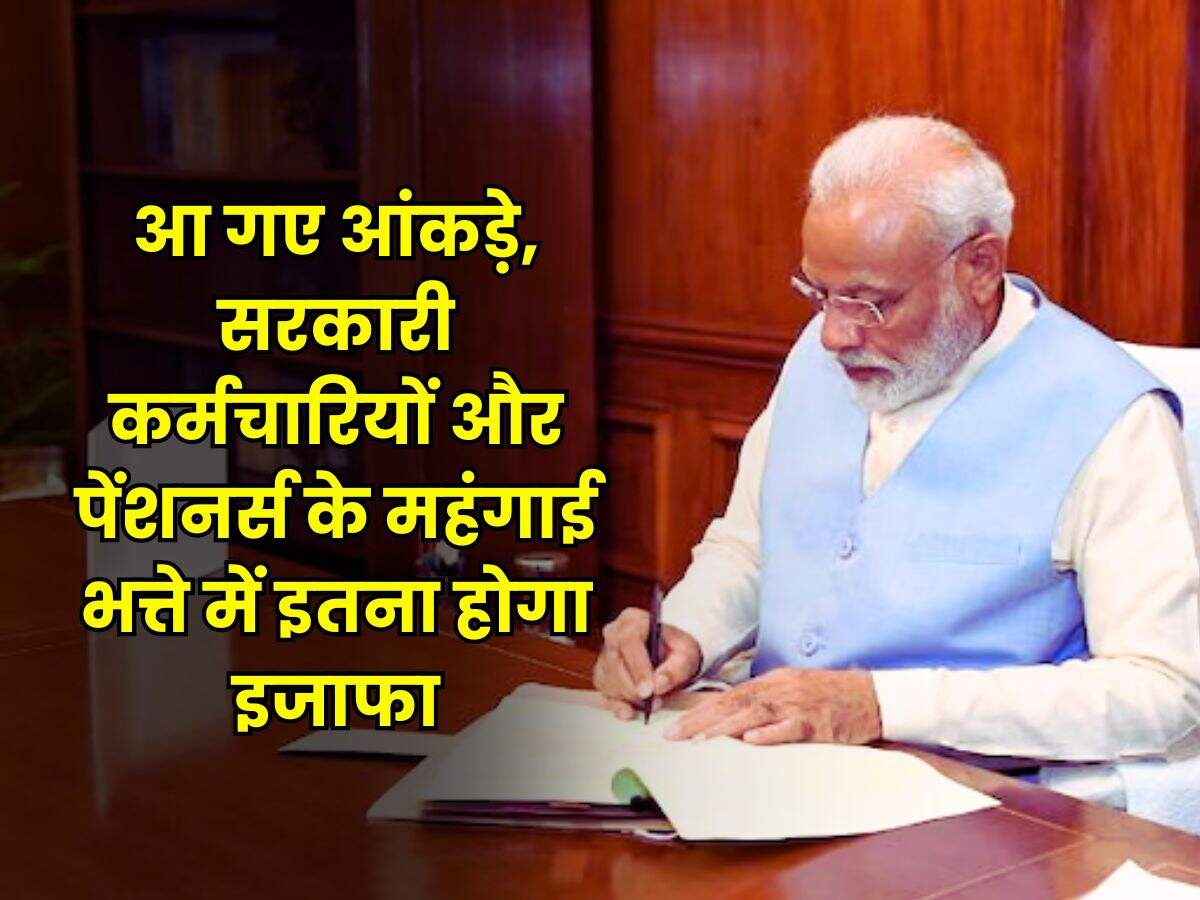 आ गए आंकड़े,
सरकारी
कर्मचारियों और
पेंशनर्स के महंगाई
भत्ते में इतना होगा
इजाफा